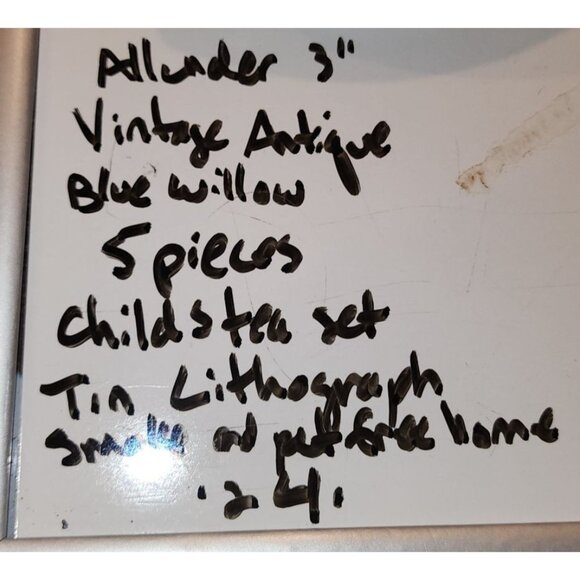 All under 3"
Vintage Antique
Blue Willow
5 pieces
childs tea set
Tin Lithograph
smoke and pet free home
.24.